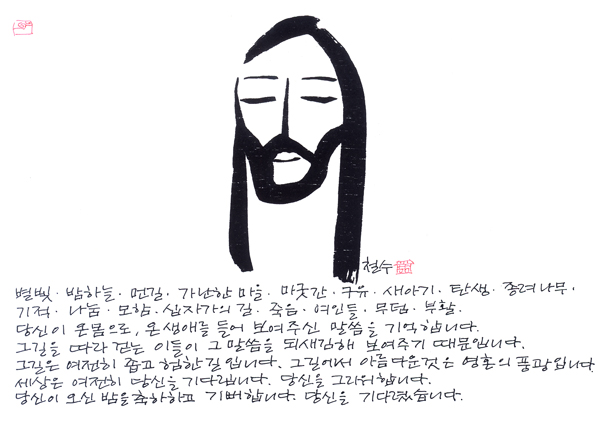 철수
별빛 · 밤하늘 · 먼길 · 가난한 마을 · 마굿간 · 구유 · 새아기 · 탄생 · 종려나무 ·
기적 · 나눔 · 모함 · 십자가의 길 · 죽음 · 여인들 · 무덤 · 부활 ·
당신이 온몸으로, 온 생애를 들어 보여주신 말씀을 기억합니다.
그길을 따라 걷는 이들이 그 말씀을 되새김해 보여주기 때문입니다.
그길은 여전히 좁고 험한 길입니다. 그길에서 아름다운것은 영혼의 풍광입니다.
세상은 여전히 당신을 기다립니다. 당신을 그리워합니다.
당신이 오신 밤을 축하하고 기뻐합니다. 당신을 기다렸습니다.